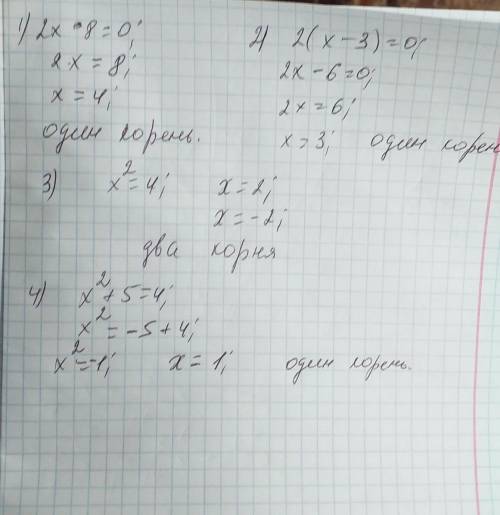 1) 2x - 8 = 0;
2x = 8;
x = 4;
один корень.
2) 2(x - 3) = 0;
2x - 6 = 0;
2x = 6;
x = 3; один корен
3) x² = 4; x = 2;
x = -2;
два корня
4) x² + 5 = 4;
x² = -5 + 4;
x² = -1; x = 1; один корень.